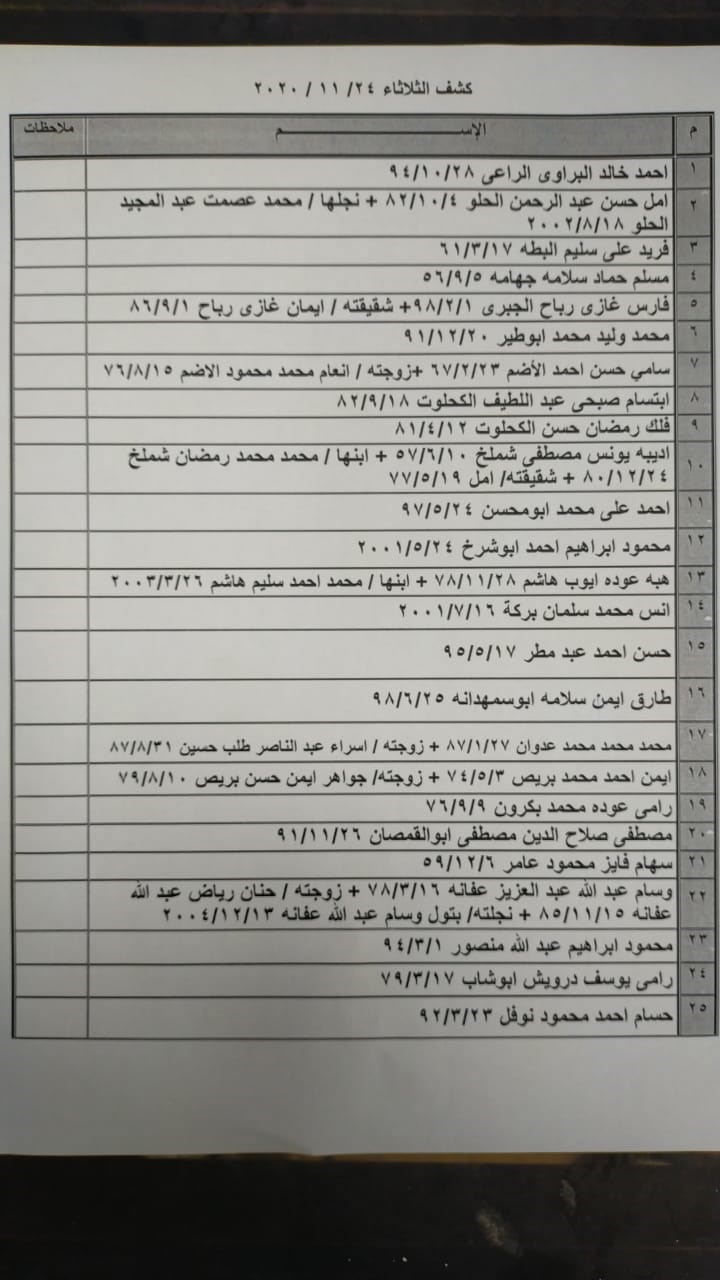 كشف الثلاثاء ٢٤/ ١١ / ٢٠٢٠
م الإســـــــــم ملاحظات
١ احمد خالد البراوى الراعى ٩٤/١٠/٢٨
٢ امل حسن عبد الرحمن الحلو ٨٢/١٠/٤ + نجلها / محمد عصمت عبد المجيد
الحلو ٢٠٠٢/٨/١٨
٣ فريد على سليم البطه ٦١/٣/١٧
٤ مسلم حماد سلامه جهامه ٥٦/٩/٥
٥ فارس غازى رباح الجبرى ٩٨/٢/١+ شقيقته / ايمان غازى رباح ٨٦/٩/١
٦ محمد وليد محمد ابوطير ٩١/١٢/٢٠
٧ سامي حسن احمد الأضم ٦٧/٢/٢٣ +زوجته / انعام محمد محمود الاضم ٧٦/٨/١٥
٨ ابتسام صبحى عبد اللطيف الكحلوت ٨٢/٩/١٨
٩ فلك رمضان حسن الكحلوت ٨١/٤/١٢
١٠ اديبه يونس مصطفى شملخ ٥٧/٦/١٠ + ابنها / محمد محمد رمضان شملخ
٨٠/١٢/٢٤ + شقيقته/ امل ٧٧/٥/١٩
١١ احمد على محمد ابومحسن ٩٧/٥/٢٤
١٢ محمود ابراهيم احمد ابوشرخ ٢٠٠١/٥/٢٤
١٣ هبه عوده ايوب هاشم ٧٨/١١/٢٨ + ابنها / محمد احمد سليم هاشم ٢٠٠٣/٣/٢٦
١٤ انس محمد سلمان بركة ٢٠٠١/٧/١٦
١٥ حسن احمد عبد مطر ٩٥/٥/١٧
١٦ طارق ايمن سلامه ابوسمهدانه ٩٨/٦/٢٥
١٧ محمد محمد محمد عدوان ٨٧/١/٢٧ + زوجته / اسراء عبد الناصر طلب حسين ٨٧/٨/٣١
١٨ ايمن احمد محمد بريص ٧٤/٥/٣ + زوجته/ جواهر ايمن حسن بريص ٧٩/٨/١٠
١٩ رامى عوده محمد بكرون ٧٦/٩/٩
٢٠ مصطفى صلاح الدين مصطفى ابوالقمصان ٩١/١١/٢٦
٢١ سهام فايز محمود عامر ٥٩/١٢/٦
٢٢ وسام عبد الله عبد العزيز عفانه ٧٨/٣/١٦ + زوجته / حنان رياض عبد الله
عفانه ٨٥/١١/١٥ + نجلته/ بتول وسام عبد الله عفانه ٢٠٠٤/١٢/١٣
٢٣ محمود ابراهيم عبد الله منصور ٩٤/٣/١
٢٤ رامى يوسف درويش ابوشاب ٧٩/٣/١٧
٢٥ حسام احمد محمود نوفل ٩٢/٣/٢٣